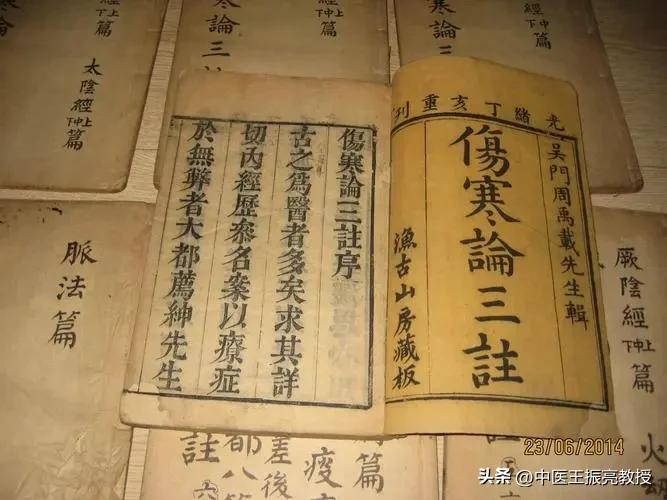 經中下篇
寒論三
經上中下篇
傷寒論三
經上中篇
太陰經上中篇
寒論
光緒丁亥重刊
吳門周禹載先生輯
傷寒論三註
漁古山房藏板
傷寒論三註序
古之爲醫者多矣求其詳
切內經歷叅名案以療症
於無弊者大都薦紳先生
厥陰經上中下篇
火
脈法篇
篇
疫
差後
都八篇
註六
23/06/2014
头条 @中医王振亮教授